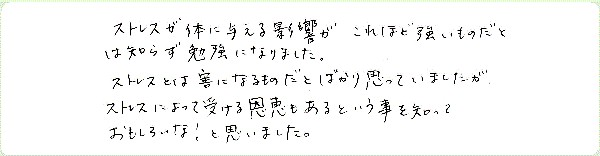 ストレスが体に与える影響が これほど強いものだと
は知らず勉強になりました。
ストレスとは害になるものだとばかり思っていましたが
ストレスによって受ける恩恵もあるという事を知って
おもしろいな!と思いました。